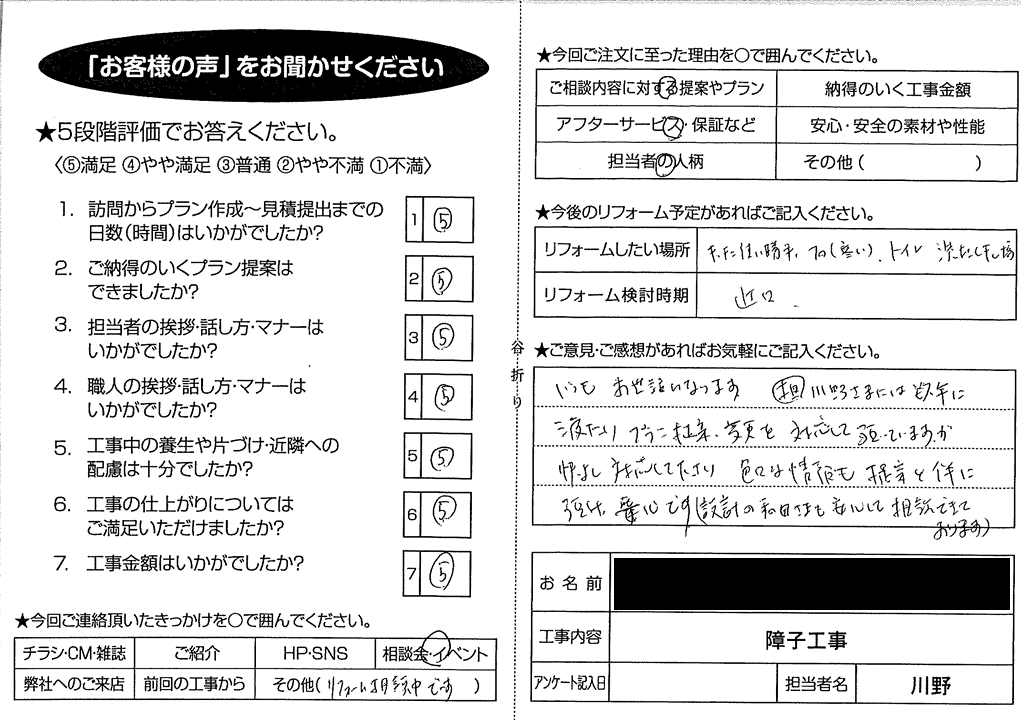 「お客様の声」をお聞かせください
★5段階評価でお答えください。
〈⑤満足 ④やや満足 ③普通 ②やや不満 ①不満〉
1. 訪問からプラン作成～見積提出までの
日数(時間)はいかがでしたか?
1 ⑤
2. ご納得のいくプラン提案は
できましたか?
2 ⑤
3. 担当者の挨拶・話し方・マナーは
いかがでしたか?
3 ⑤
4. 職人の挨拶・話し方・マナーは
いかがでしたか?
4 ⑤
5. 工事中の養生や片づけ・近隣への
配慮は十分でしたか?
5 ⑤
6. 工事の仕上がりについては
ご満足いただけましたか?
6 ⑤
7. 工事金額はいかがでしたか?
7 ⑤
★今回ご連絡頂いたきっかけを○で囲んでください。
チラシ・CM・雑誌 ご紹介 HP・SNS 相談会・イベント
弊社へのご来店 前回の工事から その他( リフォーム相談中です )
谷折り
★今回ご注文に至った理由を○で囲んでください。
ご相談内容に対する提案やプラン 納得のいく工事金額
アフターサービス・保証など 安心・安全の素材や性能
担当者の人柄 その他( )
★今後のリフォーム予定があればご記入ください。
リフォームしたい場所 トイレ
リフォーム検討時期
★ご意見・ご感想があればお気軽にご記入ください。
いつも お世話になってます 担 川野さまには
プラン 変更を 対応して頂いていますが
対応してたり 色々な情報も 提案と伴に
安心です(設計の和田さまも安心して相談できて
おります)
お名前
工事内容 障子工事
アンケート記入日 担当者名 川野